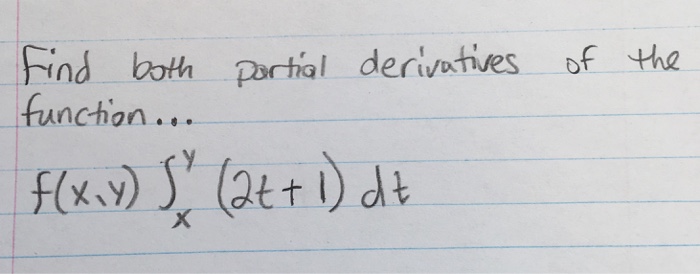 Find both partial derivatives of the
function...
f(x,y) ∫_x^y (2t+1) dt